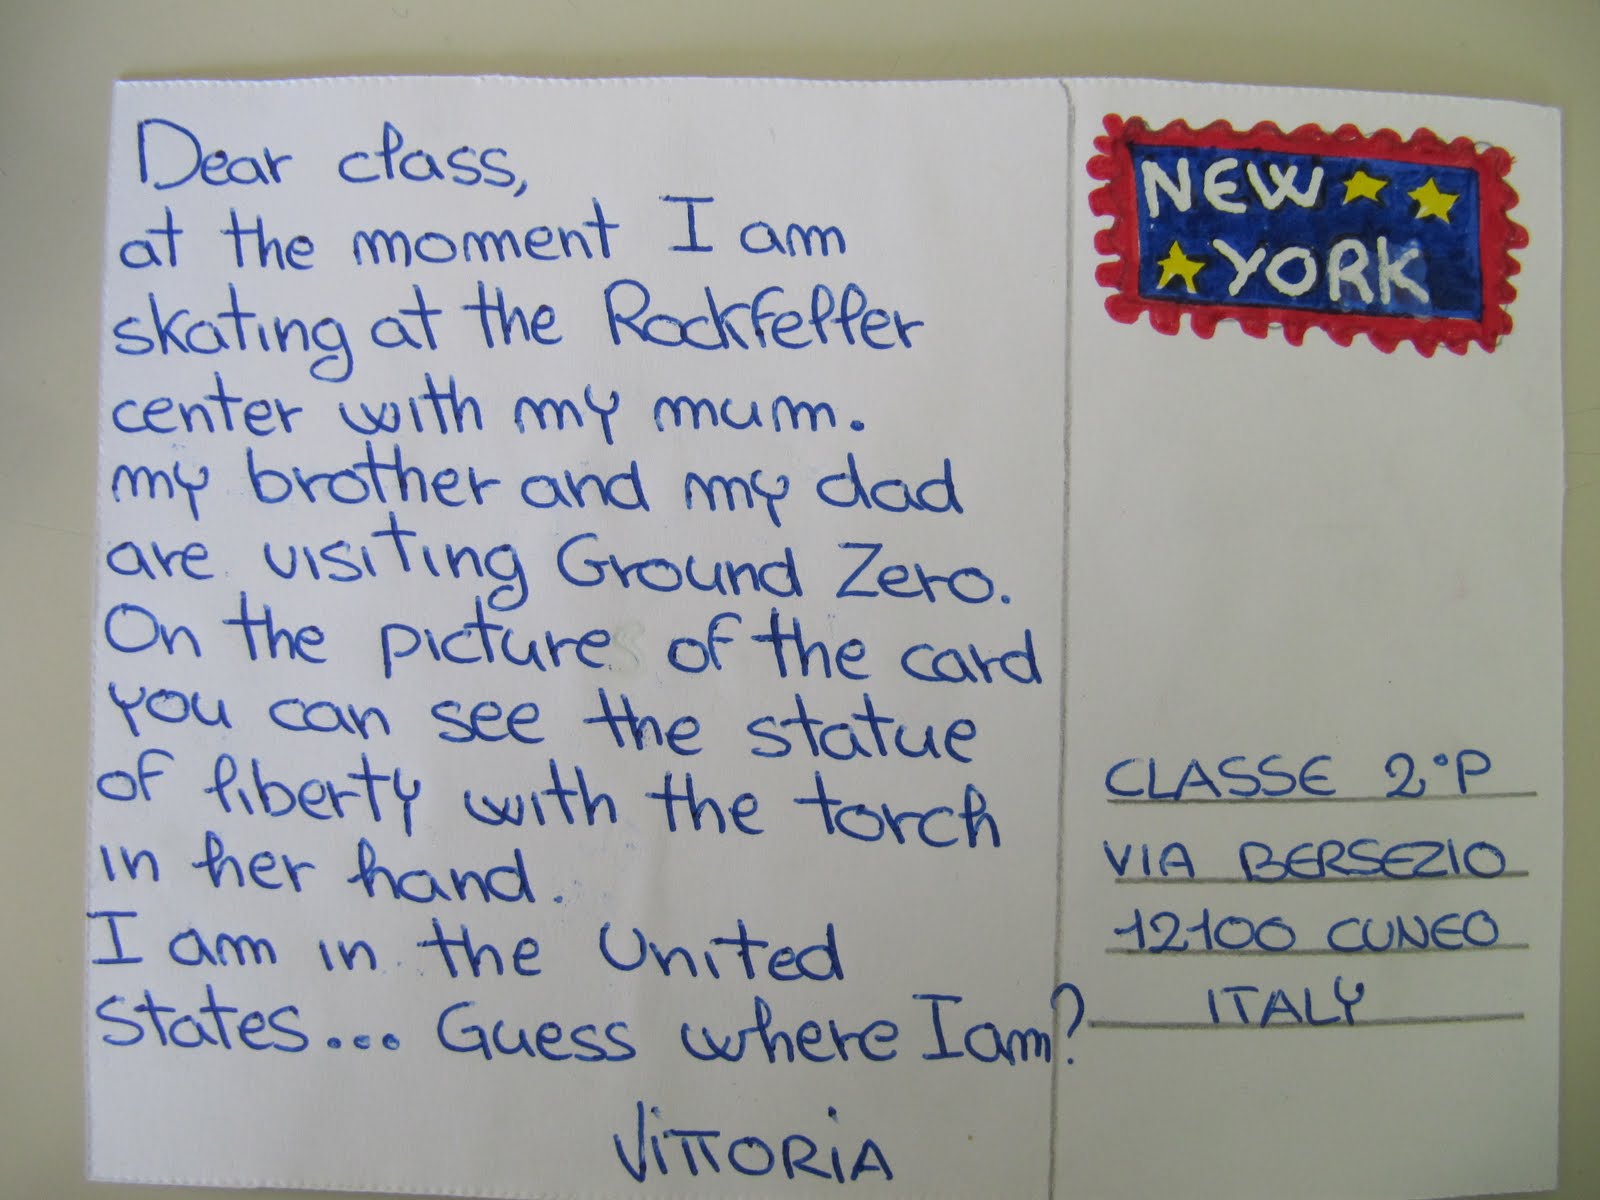 Dear class,
at the moment I am
skating at the Rockfeller
center with my mum.
my brother and my dad
are visiting Ground Zero.
On the picture of the card
you can see the statue
of liberty with the torch
in her hand.
I am in the United
States... Guess where I am?
VITTORIA
NEW
YORK
CLASSE 2°P
VIA BERSEZIO
12100 CUNEO
ITALY